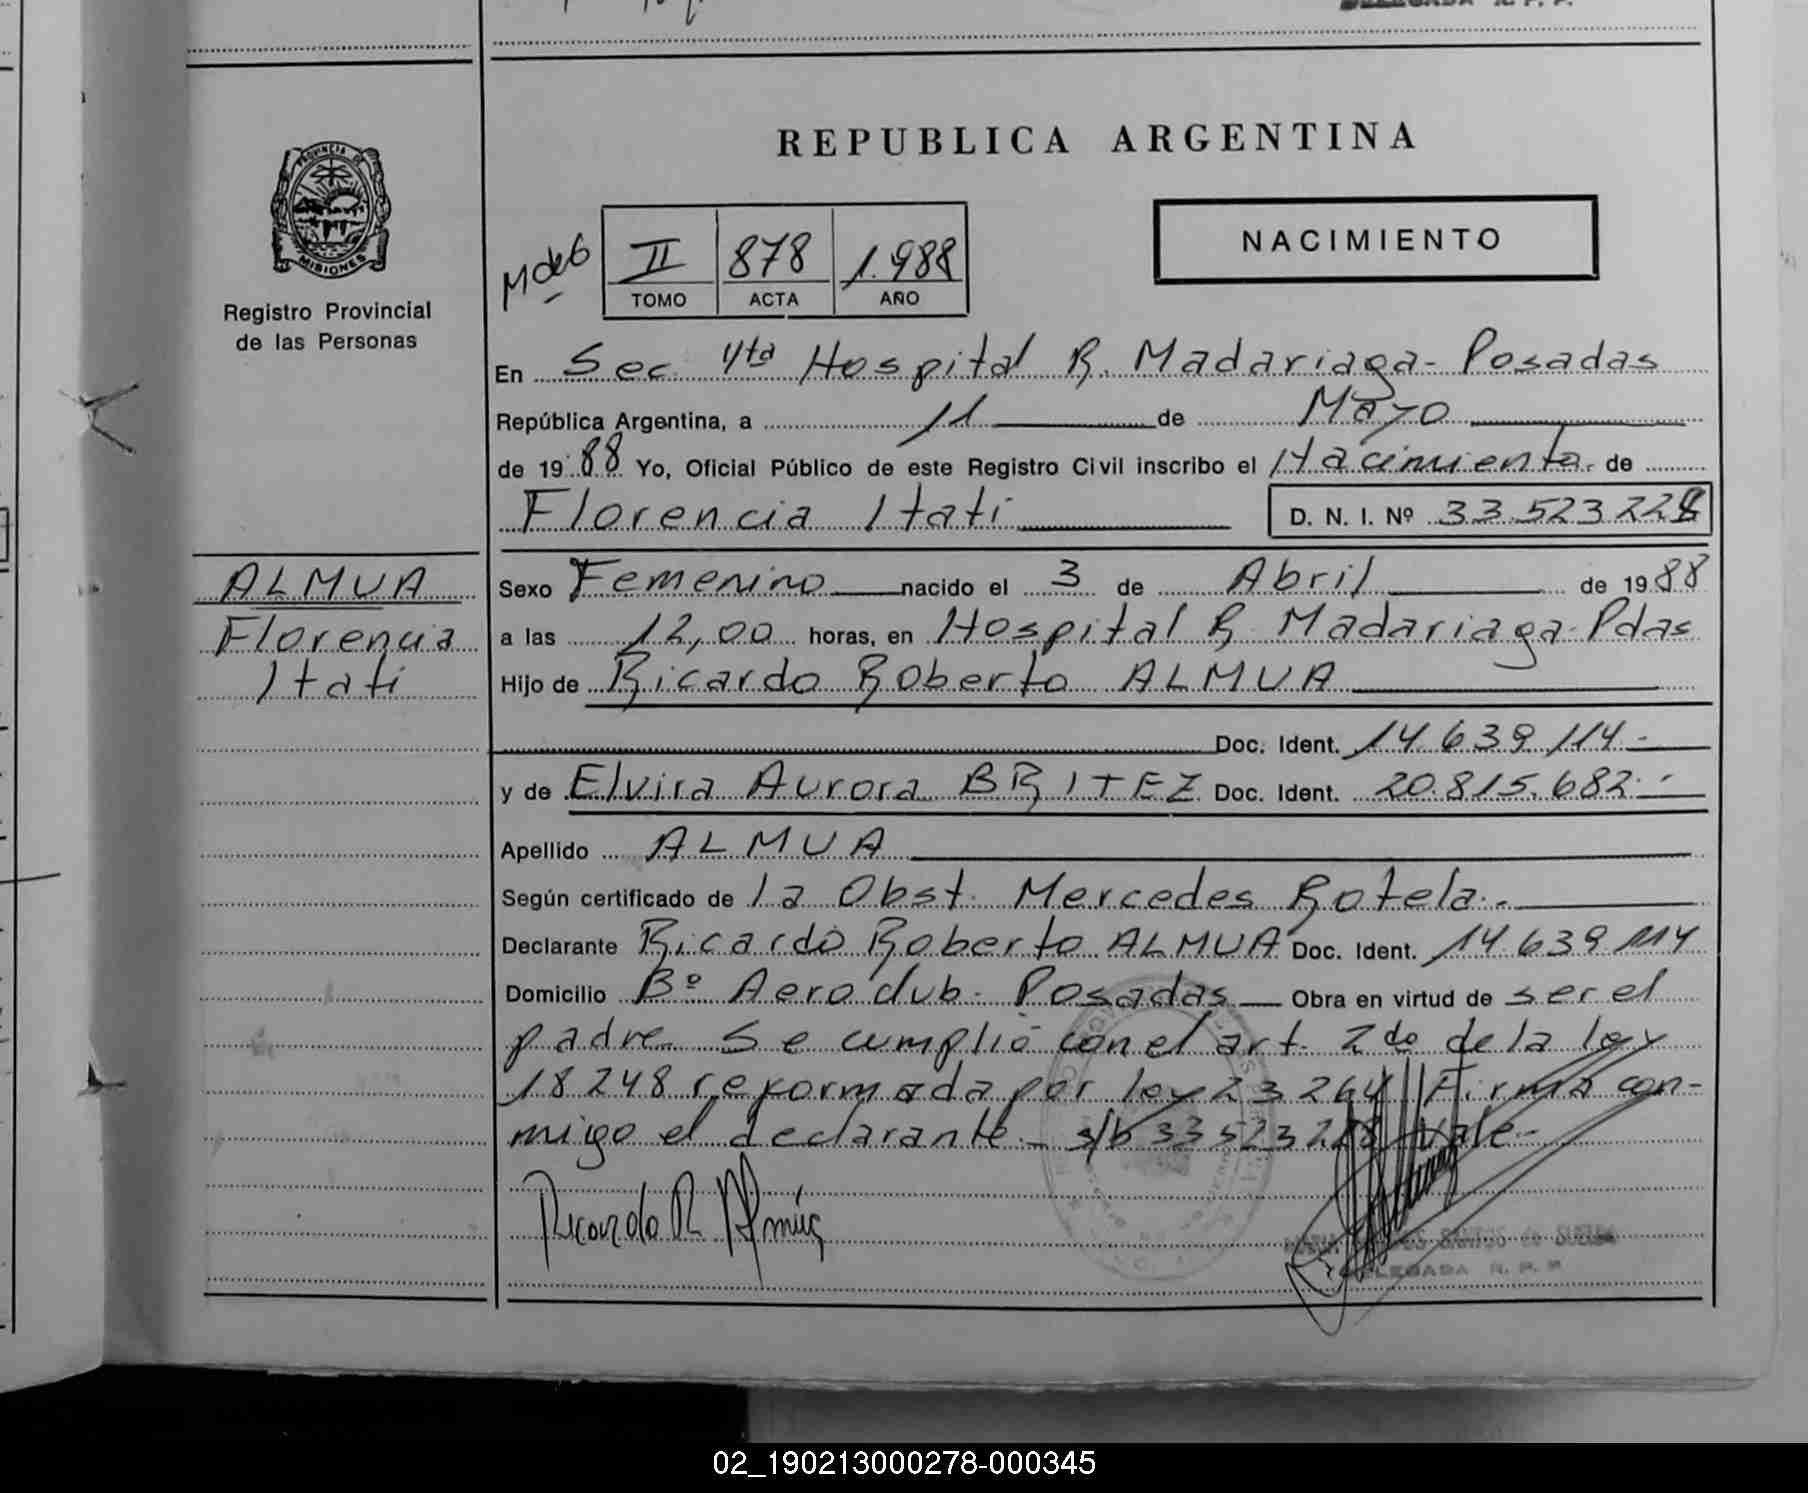 PROVINCIA DE
MISIONES
Registro Provincial
de las Personas
ALMUA
Florencia
Itati
REPUBLICA ARGENTINA
II 878 1.988
TOMO ACTA AÑO
NACIMIENTO
En Sec 4ta Hospital R. Madariaga - Posadas
República Argentina, a 11 de Mayo
de 1988 Yo, Oficial Público de este Registro Civil inscribo el Nacimiento de
Florencia Itati D. N. I. Nº 33.523.228
Sexo Femenino nacido el 3 de Abril de 1988
a las 12,00 horas, en Hospital R. Madariaga - Pdas
Hijo de Ricardo Roberto ALMUA
Doc. Ident. 14.639.114.-
y de Elvira Aurora BRITEZ Doc. Ident. 20.815.682.-
Apellido ALMUA
Según certificado de la Obst. Mercedes Rotela.-
Declarante Ricardo Roberto ALMUA Doc. Ident. 14.639.114
Domicilio Bº Aero club - Posadas Obra en virtud de ser el
padre. Se cumplió con el art. 2do de la ley
18.248 reformada por ley 23.264 Firma con-
migo el declarante - s/b 33.523.228 Vale-
Ricardo R Almúa
DELEGADA R. P. P.
02_190213000278-000345